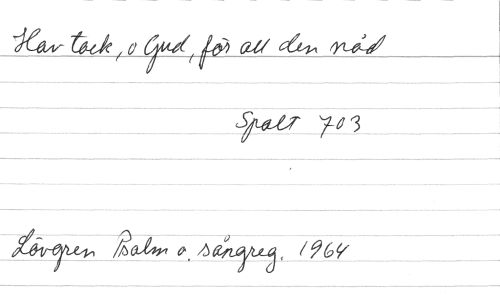 Hav tack, o Gud, för all den nåd
Spalt 703
Lövgren Psalm o. sångreg. 1964